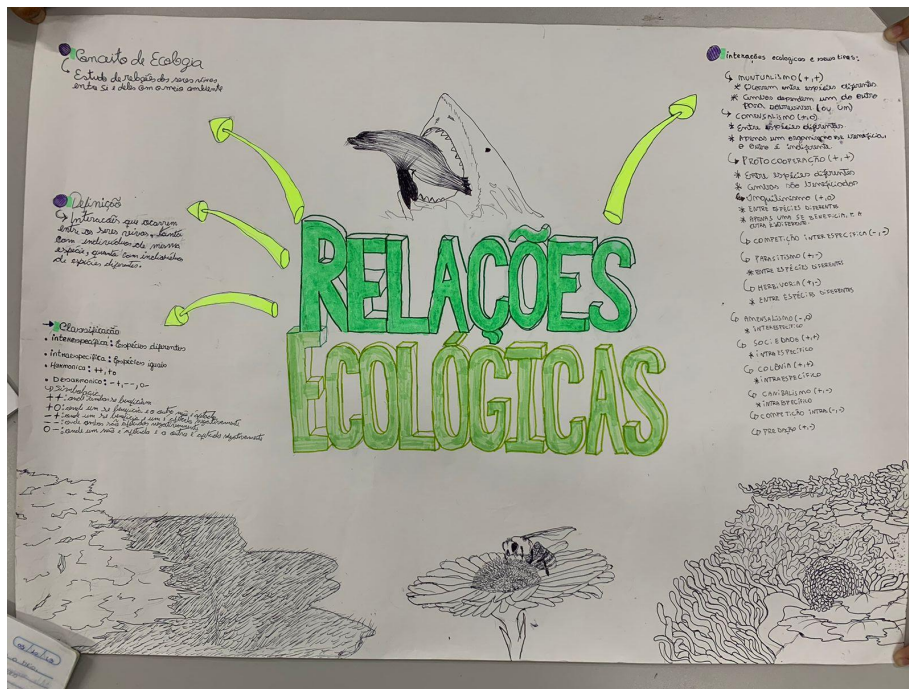 Conceito de Ecologia
Estudo de relações dos seres vivos
entre si e deles com o meio ambiente
Definição
Interações que ocorrem
entre os seres vivos, tanto
com indivíduos da mesma
espécie, quanto com indivíduos
de espécies diferentes.
Classificação
• interespecífica: Espécies diferentes
• intraespecífica: Espécies iguais
• Harmonica: ++, +0
• Desarmonica: -+, --, 0-
Simbologia
++: onde ambos se beneficiam
+0: onde um se beneficia e o outro não é afetado
-+: onde um se beneficia e um é afetado negativamente
--: onde ambos são afetados negativamente
0-: onde um não é afetado e o outro é afetado negativamente
RELAÇÕES
ECOLÓGICAS
interações ecologicas e seus tipos:
MUNTUALISMO (+,+)
* Ocorrem entre espécies diferentes
* Ambos dependem um do outro
para sobreviver (ou um)
COMENSALISMO (+,0)
* Entre espécies diferentes
* Apenas um organismo se beneficia,
o outro é indiferente
PROTOCOOPERAÇÃO (+,+)
* Entre espécies diferentes
* Ambos são beneficiados
Inquilinismo (+,0)
* ENTRE ESPÉCIES DIFERENTES
* APENAS UMA SE BENEFICIA, E A
OUTRA É INDIFERENTE
COMPETIÇÃO INTERESPECIFICA (-,-)
PARASITISMO (+,-)
* ENTRE ESPÉCIES DIFERENTES
HERBIVORIA (+,-)
* ENTRE ESPÉCIES DIFERENTES
AMENSALISMO (-,0)
* INTRAESPECÍFICO
SOCIEDADE (+,+)
* INTRAESPECÍFICO
COLÔNIA (+,+)
* INTRAESPECÍFICO
CANIBALISMO (+,-)
* INTRAESPECÍFICO
COMPETIÇÃO INTRA (-,-)
PREDAÇÃO (+,-)